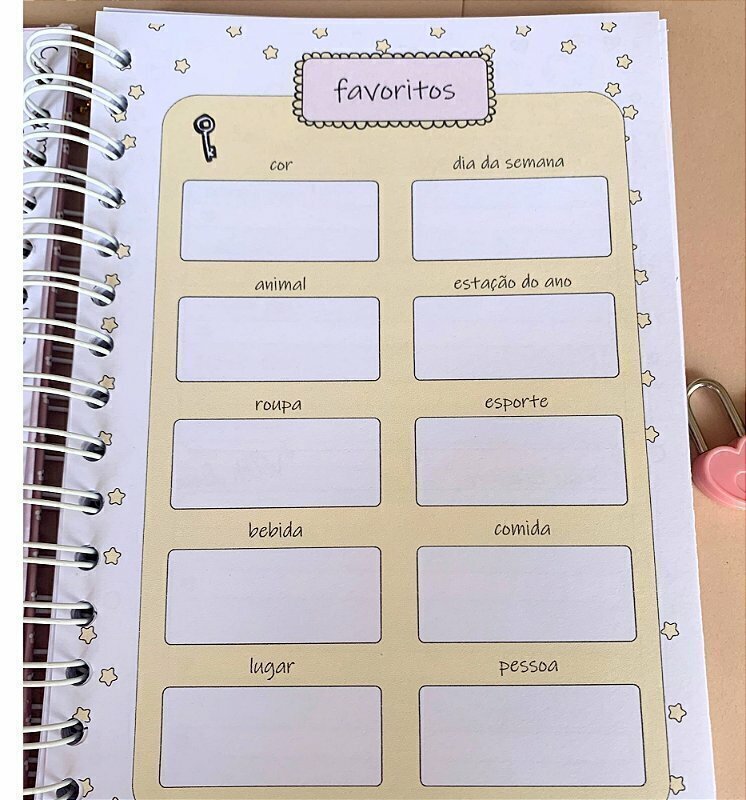 favoritos
cor
dia da semana
animal
estação do ano
roupa
esporte
bebida
comida
lugar
pessoa